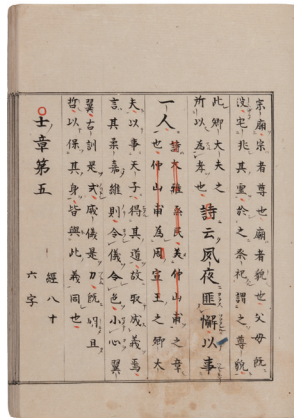 宗廟宗者尊也廟者貌也父母既
沒宅兆其靈於之祭祀謂之尊貌
此卿大夫之
所以為孝也
詩云夙夜匪懈以事
一人
詩大雅烝民美仲山甫之章
也仲山甫為周宣王之卿大
夫以事天子得其道故取成義焉
言其柔嘉維則令儀令色小心翼
翼古訓是式威儀是力既明且
哲以保其身皆與此義同也
士章第五
經八十
六字